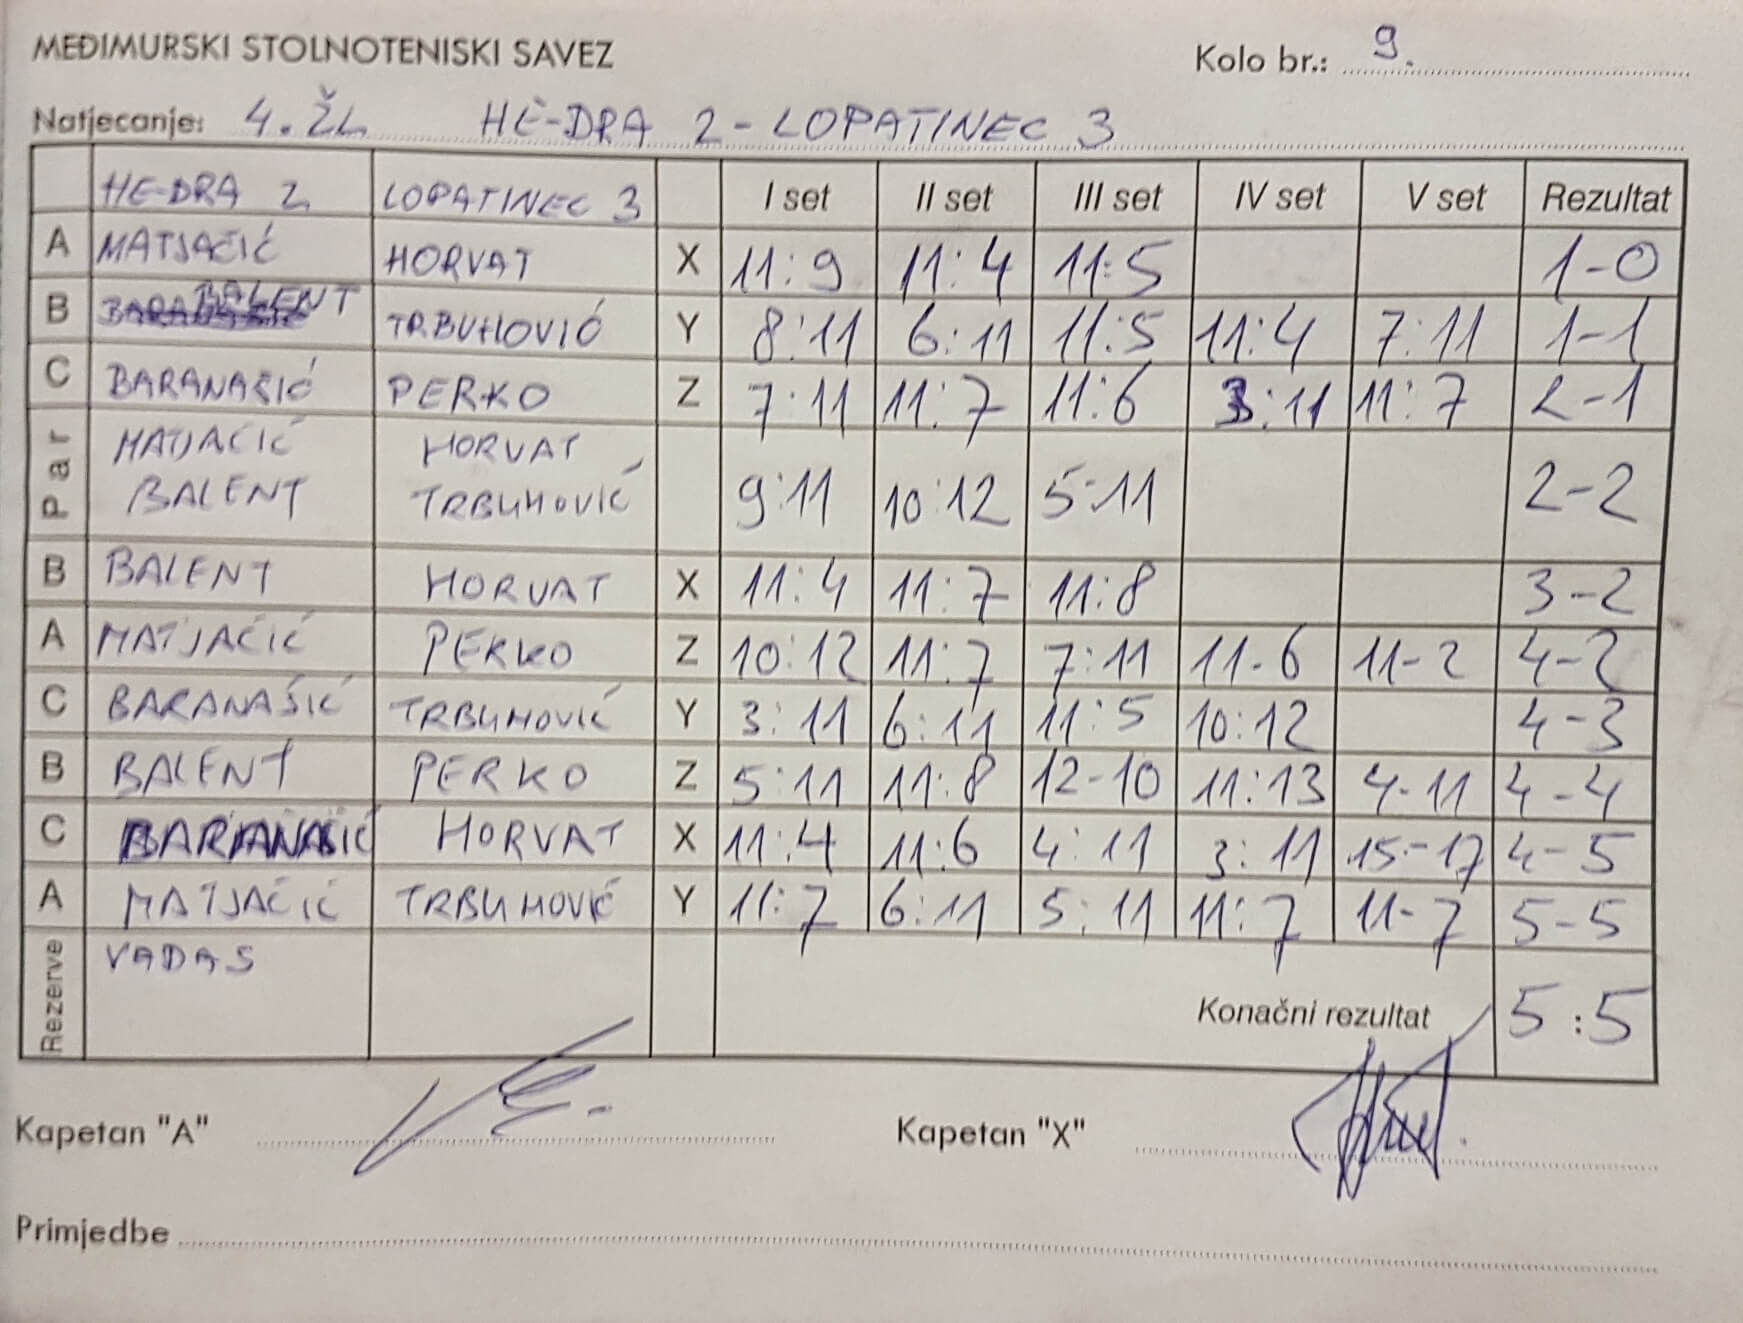 MEĐIMURSKI STOLNOTENISKI SAVEZ Kolo br.: 9.
Natjecanje: 4. ŽL HE-DRA 2 - LOPATINEC 3
HE-DRA 2 LOPATINEC 3 I set II set III set IV set V set Rezultat
A MATJAČIĆ HORVAT X 11:9 11:4 11:5 1-0
B BALENT TRBUHOVIĆ Y 8:11 6:11 11:5 11:4 7:11 1-1
C BARANAŠIĆ PERKO Z 7:11 11:7 11:6 3:11 11:7 2-1
Par MATJAČIĆ HORVAT
BALENT TRBUHOVIĆ 9:11 10:12 5:11 2-2
B BALENT HORVAT X 11:4 11:7 11:8 3-2
A MATJAČIĆ PERKO Z 10:12 11:7 7:11 11-6 11-2 4-2
C BARANAŠIĆ TRBUHOVIĆ Y 3:11 6:11 11:5 10:12 4-3
B BALENT PERKO Z 5:11 11:8 12-10 11:13 4-11 4-4
C BARANAŠIĆ HORVAT X 11:4 11:6 4:11 3:11 15-17 4-5
A MATJAČIĆ TRBUHOVIĆ Y 11:7 6:11 5:11 11:7 11-7 5-5
Rezerve VADAS
Konačni rezultat 5:5
Kapetan "A" Kapetan "X"
Primjedbe